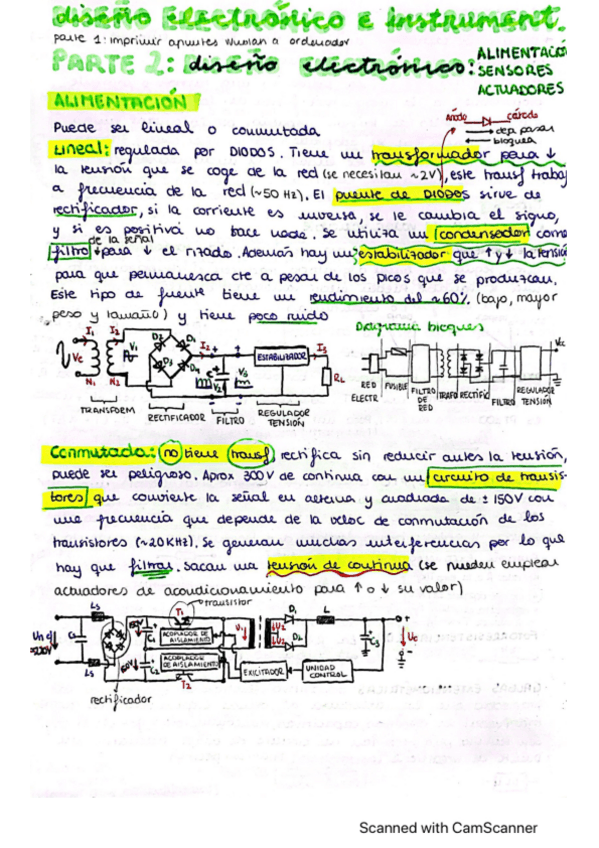 diseño Electrónico e Instrument.
parte 1: imprimir apuntes a ordenador
PARTE 2: diseño electrónico: ALIMENTACIÓ
SENSORES
ACTUADORES
ALIMENTACIÓN
Ánodo cátodo
deja pasar
bloquea
Puede ser lineal o conmutada
Lineal: regulada por DIODOS. Tiene un transformador para ↓
la tensión que se coge de la red (se necesitan ~2V), este transf trabaj
a frecuencia de la red (~50 Hz). El puente de DIODOS sirve de
rectificador, si la corriente es inversa, se le cambia el signo,
y si es positiva no hace nada. Se utiliza un condensador como
de la señal
filtro para ↓ el rizado. Además hay un estabilizador que ↑ y ↓ la tensió
para que permanezca cte a pesar de los picos que se produzcan.
Este tipo de fuente tiene un rendimiento del ~60% (bajo, mayor
peso y tamaño) y tiene poco ruido
Diagrama bloques
I1 I2 V1 D1 D2 D3 D4 I2 I3
Vc N1 N2 V2 V3 ESTABILIZADOR RL
TRANSFORM RECTIFICADOR FILTRO REGULADOR TENSIÓN
Vcc
RED ELECTR FUSIBLE FILTRO DE RED TRAFO RECTIFIC FILTRO REGULADOR TENSIÓN
Conmutada: no tiene transf, rectifica sin reducir antes la tensión,
puede ser peligroso. Aprox 300V de continua con un circuito de transis-
tores que convierte la señal en alterna y cuadrada de ± 150V con
una frecuencia que depende de la veloc de conmutación de los
transistores (~20KHz). Se generan muchas interferencias por lo que
hay que filtrar. Sacan una tensión de continua (se pueden emplear
actuadores de acondicionamiento para ↑ o ↓ su valor)
transistor
Ls T1 D1 L
C1 ACOPLADOR DE AISLAMIENTO V1 V2 C3 Vc
ACOPLADOR DE AISLAMIENTO V2 D2
Ls C2 T2 EXCITADOR UNIDAD CONTROL
rectificador
Scanned with CamScanner